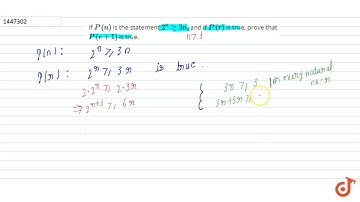 1447302
If P(n) is the statement 2ⁿ ≥ 3n, and if P(r) is true, prove that
P(r + 1) is true.
P(n) : 2ⁿ ≥ 3n
P(r) : 2ʳ ≥ 3r is true.
2·2ʳ ≥ 2·3r
⇒ 2ʳ⁺¹ ≥ 6r
3r ≥ 3 for every natural
no. r
3r + 3r ≥